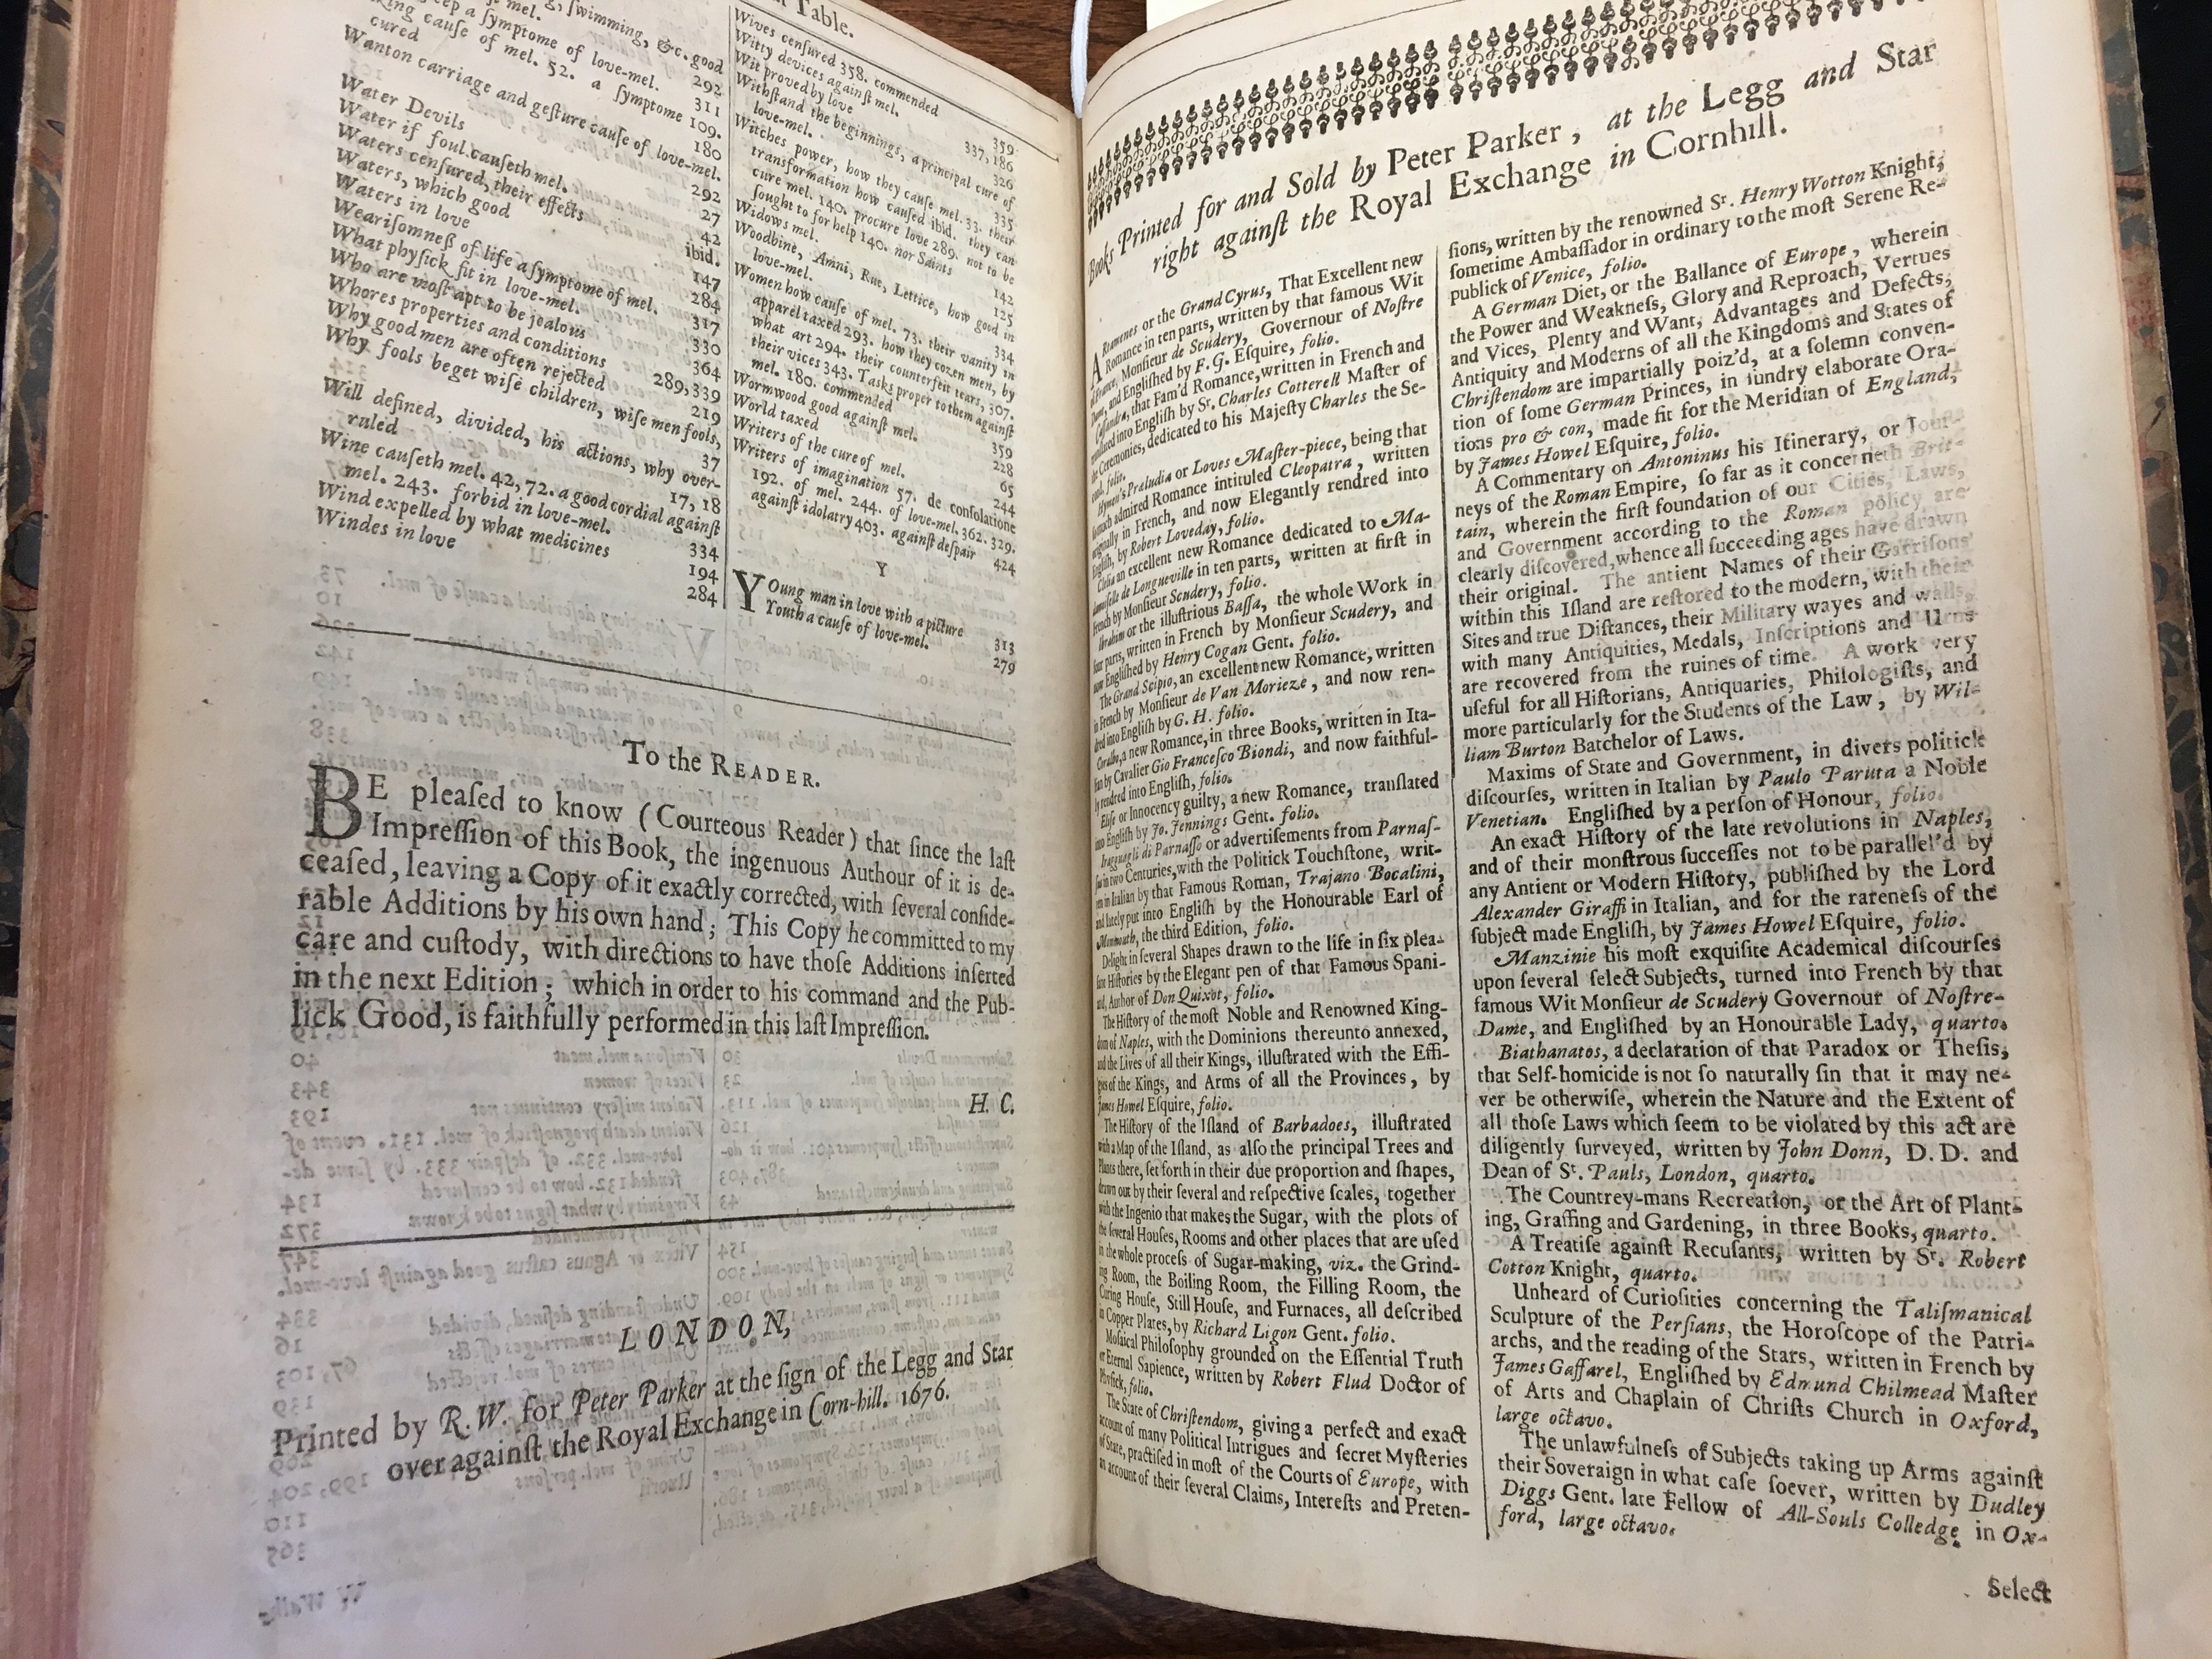 n Table.
g, ſwimming, &c. good
mel.
eep a ſymptome of love-mel. 292
king cauſe of mel. 52. a ſymptome 109.
cured 311
Wanton carriage and geſture cauſe of love-mel. 180
Water Devils
Water if foul cauſeth mel. 292
Waters cenſured, their effects 27
Waters, which good 42
Waters in love ibid.
Weariſomneß of life a ſymptome of mel. 147
What phyſick fit in love-mel. 284
Who are moſt apt to be jealous 317
Whores properties and conditions 330
Why good men are often rejected 364
Why fools beget wiſe children, wiſe men fools, 289, 339
219
Will defined, divided, his actions, why over-
ruled 37
17, 18
Wine cauſeth mel. 42, 72. a good cordial againſt
mel. 243. forbid in love-mel.
Wind expelled by what medicines 334
Windes in love 194
284
Wives cenſured 358. commended 359
Witty devices againſt mel. 337, 186
Wit proved by love 326
Withſtand the beginnings, a principal cure of
love-mel. 335
Witches power, how they cauſe mel. 33. their
transformation how cauſed ibid. they can
cure mel. 140. procure love 289. not to be
ſought to for help 140. nor Saints 142
Widows mel. 125
Woodbine, Amni, Rue, Lettice, how good in
love-mel. 334
Women how cauſe of mel. 73. their vanity in
apparel taxed 293. how they cozen men, by
what art 294. their counterfeit tears, 307.
their vices 343. Tasks proper to them againſt
mel. 180. commended 359
Wormwood good againſt mel. 228
World taxed 65
Writers of the cure of mel. 244
Writers of imagination 57. de conſolatione
192. of mel. 244. of love-mel. 362. 329.
againſt idolatry 403. againſt deſpair 424
Y
YOung man in love with a picture 313
Youth a cauſe of love-mel. 279
To the READER.
BE pleaſed to know (Courteous Reader) that ſince the laſt
Impreſſion of this Book, the ingenuous Authour of it is de-
ceaſed, leaving a Copy of it exactly corrected, with ſeveral conſide-
rable Additions by his own hand; This Copy he committed to my
care and cuſtody, with directions to have thoſe Additions inſerted
in the next Edition; which in order to his command and the Pub-
lick Good, is faithfully performed in this laſt Impreſſion.
H. C.
LONDON,
Printed by R.W. for Peter Parker at the ſign of the Legg and Star
over againſt the Royal Exchange in Corn-hill. 1676.
Books Printed for and Sold by Peter Parker, at the Legg and Star
right againſt the Royal Exchange in Cornhill.
ARtamenes or the Grand Cyrus, That Excellent new
Romance in ten parts, written by that famous Wit
Monſieur de Scudery, Governour of Noſtre
Dame, and Engliſhed by F. G. Eſquire, folio.
Caſſandra, that Fam'd Romance, written in French and
rendred into Engliſh by Sr. Charles Cotterell Maſter of
the Ceremonies, dedicated to his Majeſty Charles the Se-
cond, folio.
Hymen's Præludia or Loves Maſter-piece, being that
ſo much admired Romance intituled Cleopatra, written
originally in French, and now Elegantly rendred into
Engliſh, by Robert Loveday, folio.
Clelia an excellent new Romance dedicated to Ma-
damoiſelle de Longueville in ten parts, written at firſt in
French by Monſieur Scudery, folio.
Ibrahim or the illuſtrious Baſſa, the whole Work in
four parts, written in French by Monſieur Scudery, and
now Engliſhed by Henry Cogan Gent. folio.
The Grand Scipio, an excellent new Romance, written
in French by Monſieur de Van Morieze, and now ren-
dred into Engliſh by G. H. folio.
Coralbo, a new Romance, in three Books, written in Ita-
lian by Cavalier Gio Franceſco Biondi, and now faithful-
ly rendred into Engliſh, folio.
Eliſe or Innocency guilty, a new Romance, tranſlated
into Engliſh by Jo. Jennings Gent. folio.
Iragguagli di Parnaſſo or advertiſements from Parnaſ-
ſus in two Centuries, with the Politick Touchſtone, writ-
ten in Italian by that Famous Roman, Trajano Bocalini,
and lately put into Engliſh by the Honourable Earl of
Monmouth, the third Edition, folio.
Delight in ſeveral Shapes drawn to the life in ſix plea-
ſant Hiſtories by the Elegant pen of that Famous Spani-
ard, Author of Don Quixot, folio.
The Hiſtory of the moſt Noble and Renowned King-
dom of Naples, with the Dominions thereunto annexed,
and the Lives of all their Kings, illuſtrated with the Effi-
gies of the Kings, and Arms of all the Provinces, by
James Howel Eſquire, folio.
The Hiſtory of the Iſland of Barbadoes, illuſtrated
with a Map of the Iſland, as alſo the principal Trees and
Plants there, ſet forth in their due proportion and ſhapes,
drawn out by their ſeveral and reſpective ſcales, together
with the Ingenio that makes the Sugar, with the plots of
the ſeveral Houſes, Rooms and other places that are uſed
in the whole proceſs of Sugar-making, viz. the Grind-
ing Room, the Boiling Room, the Filling Room, the
Curing Houſe, Still Houſe, and Furnaces, all deſcribed
in Copper Plates, by Richard Ligon Gent. folio.
Moſaical Philoſophy grounded on the Eſſential Truth
or Eternal Sapience, written by Robert Flud Doctor of
Phyſick, folio.
The State of Chriſtendom, giving a perfect and exact
account of many Political Intrigues and ſecret Myſteries
of State, practiſed in moſt of the Courts of Europe, with
an account of their ſeveral Claims, Intereſts and Preten-
ſions, written by the renowned Sr. Henry Wotton Knight,
ſometime Ambaſſador in ordinary to the moſt Serene Re-
publick of Venice, folio.
A German Diet, or the Ballance of Europe, wherein
the Power and Weakneſs, Glory and Reproach, Vertues
and Vices, Plenty and Want, Advantages and Defects,
Antiquity and Moderns of all the Kingdoms and States of
Chriſtendom are impartially poiz'd, at a ſolemn conven-
tion of ſome German Princes, in ſundry elaborate Ora-
tions pro & con, made fit for the Meridian of England,
by James Howel Eſquire, folio.
A Commentary on Antoninus his Itinerary, or Jour-
neys of the Roman Empire, ſo far as it concerneth Brit-
tain, wherein the firſt foundation of our Cities, Laws,
and Government according to the Roman policy are
clearly diſcovered, whence all ſucceeding ages have drawn
their original. The antient Names of their Garriſons
within this Iſland are reſtored to the modern, with their
Sites and true Diſtances, their Military wayes and walls,
with many Antiquities, Medals, Inſcriptions and Urns
are recovered from the ruines of time. A work very
uſeful for all Hiſtorians, Antiquaries, Philologiſts, and
more particularly for the Students of the Law, by Wil-
liam Burton Batchelor of Laws.
Maxims of State and Government, in divers politick
diſcourſes, written in Italian by Paulo Paruta a Noble
Venetian. Engliſhed by a perſon of Honour, folio.
An exact Hiſtory of the late revolutions in Naples,
and of their monſtrous ſucceſſes not to be parallel'd by
any Antient or Modern Hiſtory, publiſhed by the Lord
Alexander Giraffi in Italian, and for the rareneſs of the
ſubject made Engliſh, by James Howel Eſquire, folio.
Manzinie his moſt exquiſite Academical diſcourſes
upon ſeveral ſelect Subjects, turned into French by that
famous Wit Monſieur de Scudery Governour of Noſtre-
Dame, and Engliſhed by an Honourable Lady, quarto.
Biathanatos, a declaration of that Paradox or Theſis,
that Self-homicide is not ſo naturally ſin that it may ne-
ver be otherwiſe, wherein the Nature and the Extent of
all thoſe Laws which ſeem to be violated by this act are
diligently ſurveyed, written by John Donn, D. D. and
Dean of St. Pauls, London, quarto.
The Countrey-mans Recreation, or the Art of Plant-
ing, Graffing and Gardening, in three Books, quarto.
A Treatiſe againſt Recuſants, written by Sr. Robert
Cotton Knight, quarto.
Unheard of Curioſities concerning the Taliſmanical
Sculpture of the Perſians, the Horoſcope of the Patri-
archs, and the reading of the Stars, written in French by
James Gaffarel, Engliſhed by Edmund Chilmead Maſter
of Arts and Chaplain of Chriſts Church in Oxford,
large octavo.
The unlawfulneſs of Subjects taking up Arms againſt
their Soveraign in what caſe ſoever, written by Dudley
Diggs Gent. late Fellow of All-Souls Colledge in Ox-
ford, large octavo.
Select